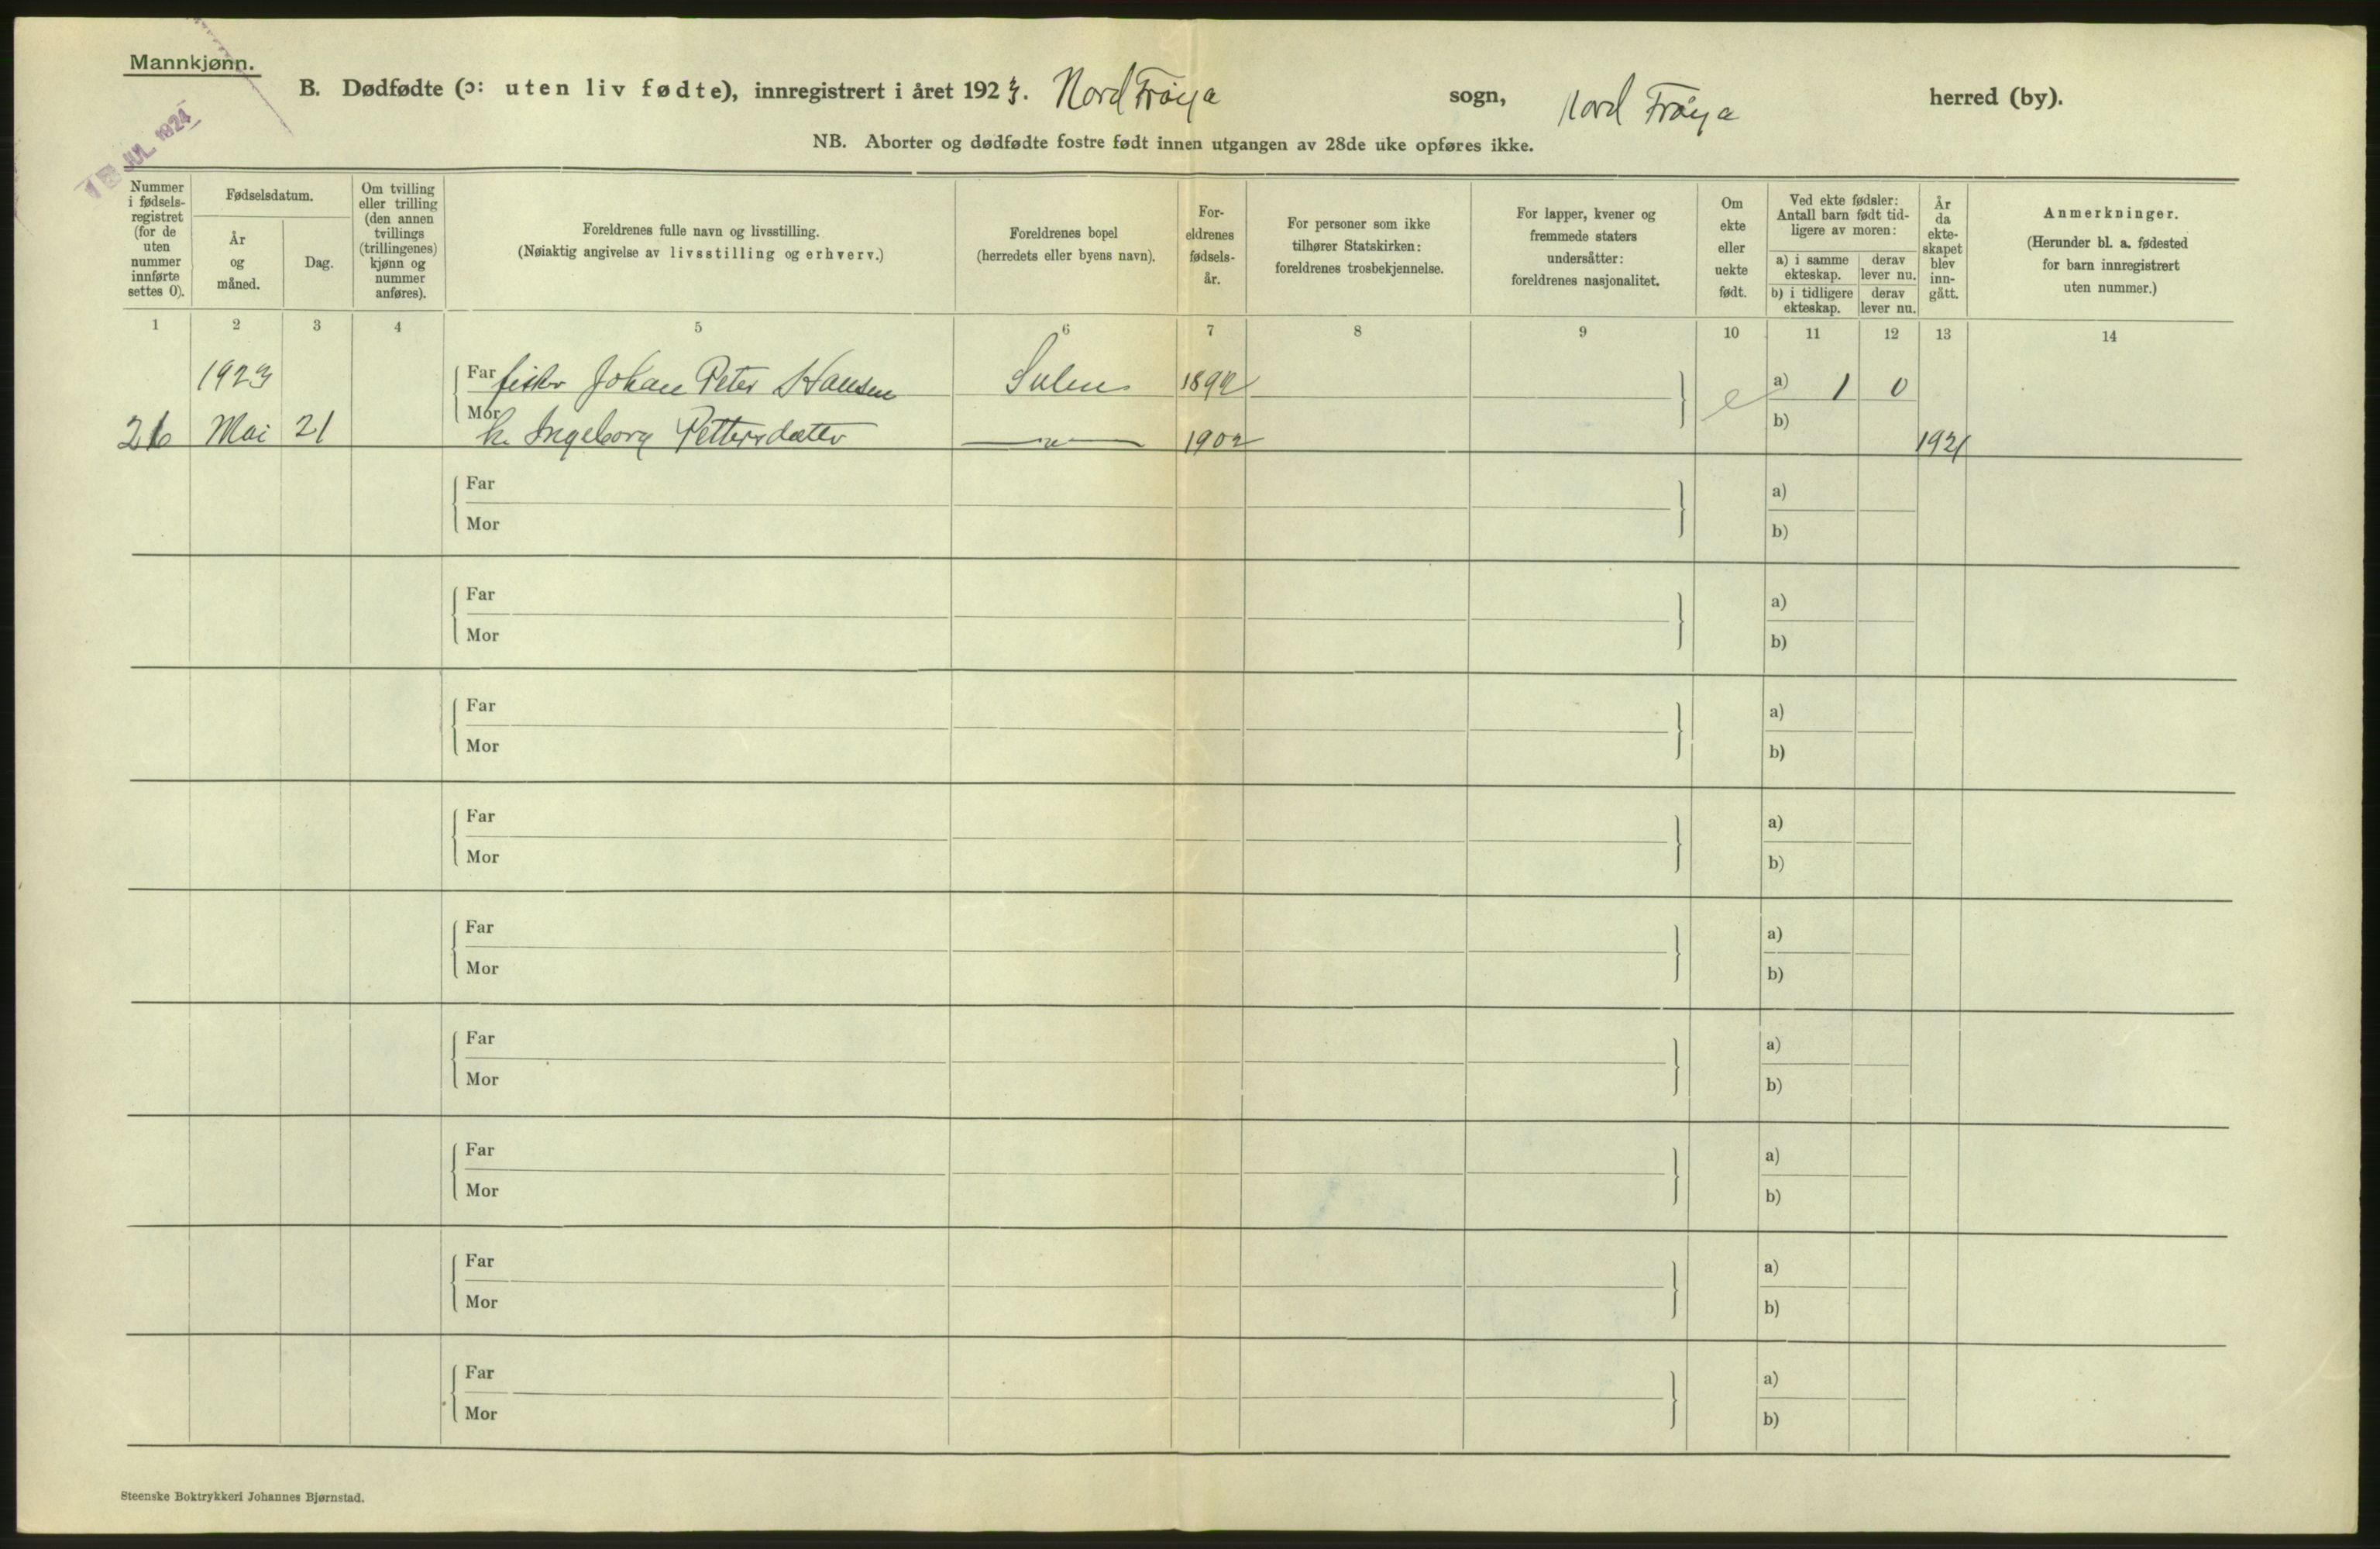 Mannkjønn.
B. Dødfødte (ɔ: uten liv fødte), innregistrert i året 1923. Nord Frøya sogn, Nord Frøya herred (by).
JUL 1924
NB. Aborter og dødfødte fostre født innen utgangen av 28de uke opføres ikke.
Nummer i fødsels-registret (for de uten nummer innførte settes 0).
Fødselsdatum.
År og måned.
Dag.
Om tvilling eller trilling (den annen tvillings (trillingenes) kjønn og nummer anføres).
Foreldrenes fulle navn og livsstilling.
(Nøiaktig angivelse av livsstilling og erhverv.)
Foreldrenes bopel
(herredets eller byens navn).
For-eldrenes fødsels-år.
For personer som ikke tilhører Statskirken: foreldrenes trosbekjennelse.
For lapper, kvener og fremmede staters undersåtter: foreldrenes nasjonalitet.
Om ekte eller uekte født.
Ved ekte fødsler: Antall barn født tid-ligere av moren:
a) i samme ekteskap.
derav lever nu.
b) i tidligere ekteskap.
derav lever nu.
År da ekte-skapet blev inn-gått.
Anmerkninger.
(Herunder bl. a. fødested for barn innregistrert uten nummer.)
1 2 3 4 5 6 7 8 9 10 11 12 13 14
1923 Far fisker Johan Peter Hansen Sulen 1899 e a) 1 0
26 Mai 21 Mor h. Ingeborg Pettersdatter —"— 1902 b) 1921
Far a)
Mor b)
Far a)
Mor b)
Far a)
Mor b)
Far a)
Mor b)
Far a)
Mor b)
Far a)
Mor b)
Far a)
Mor b)
Far a)
Mor b)
Far a)
Mor b)
Steenske Boktrykkeri Johannes Bjørnstad.